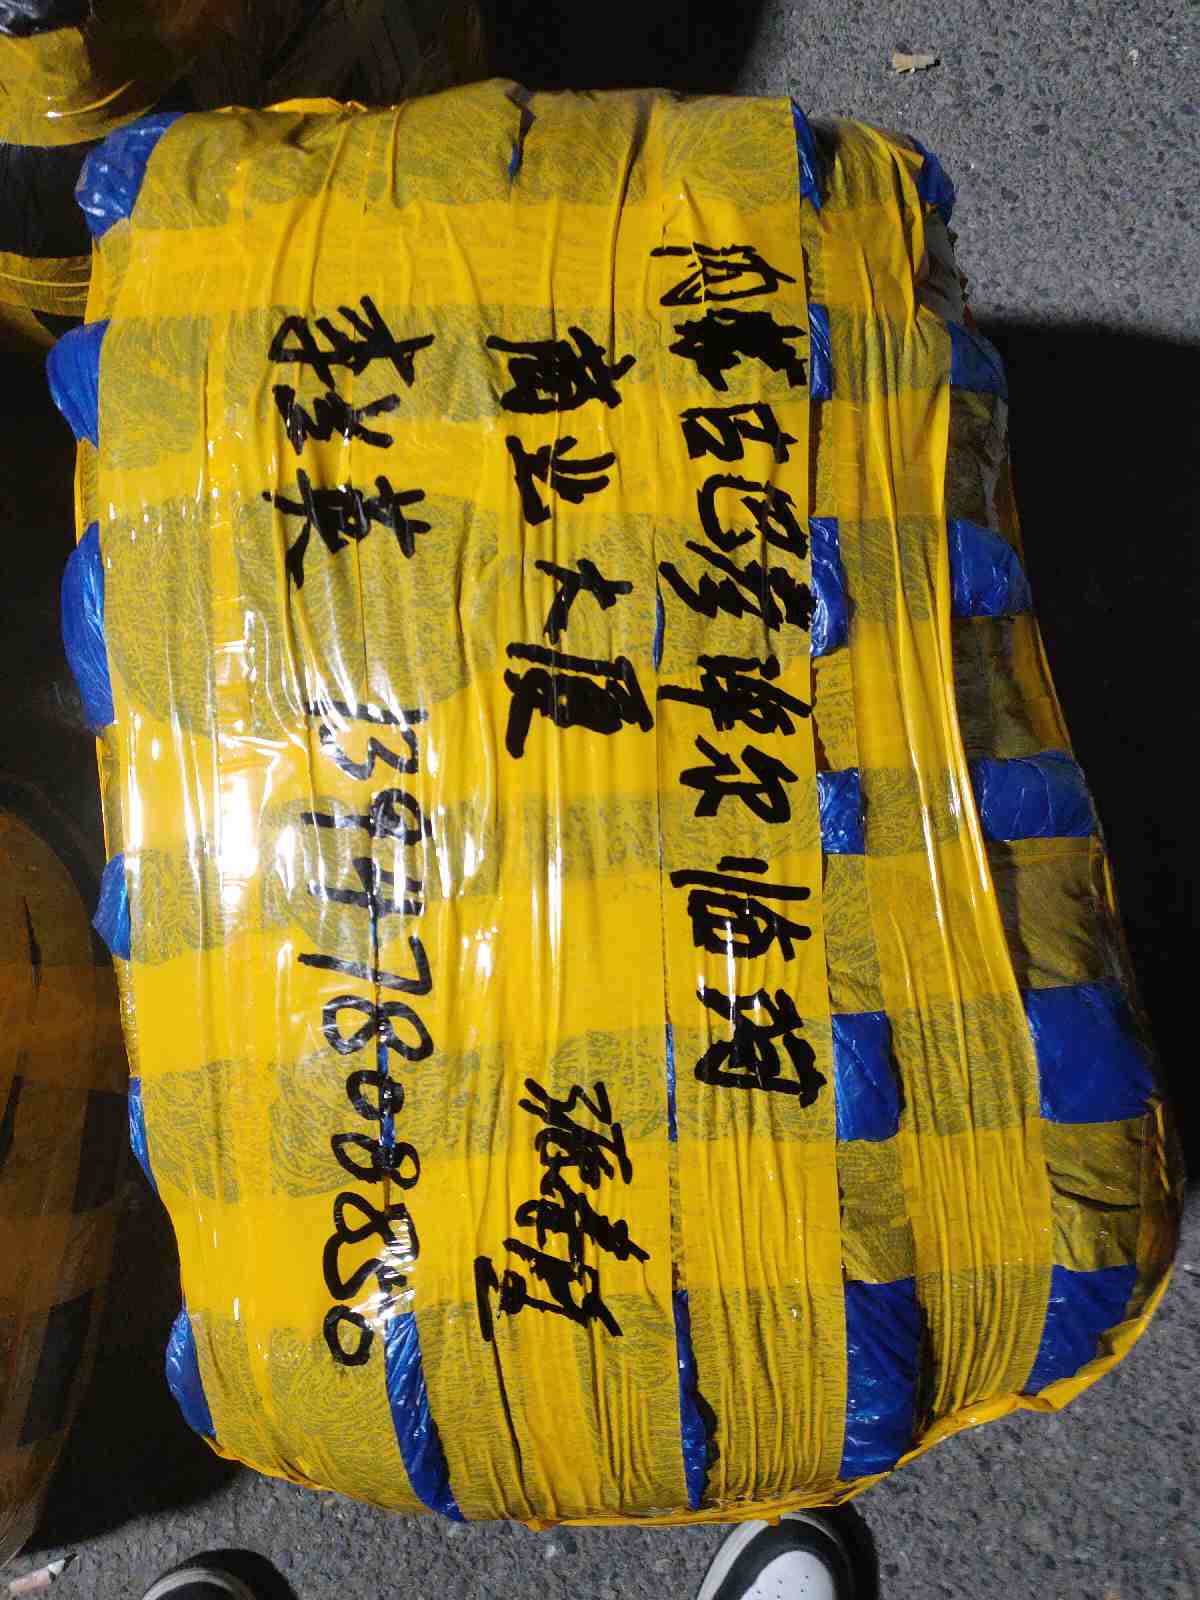 内蒙古巴彦淖尔 临河
商业大厦 张
李 英 13947808880